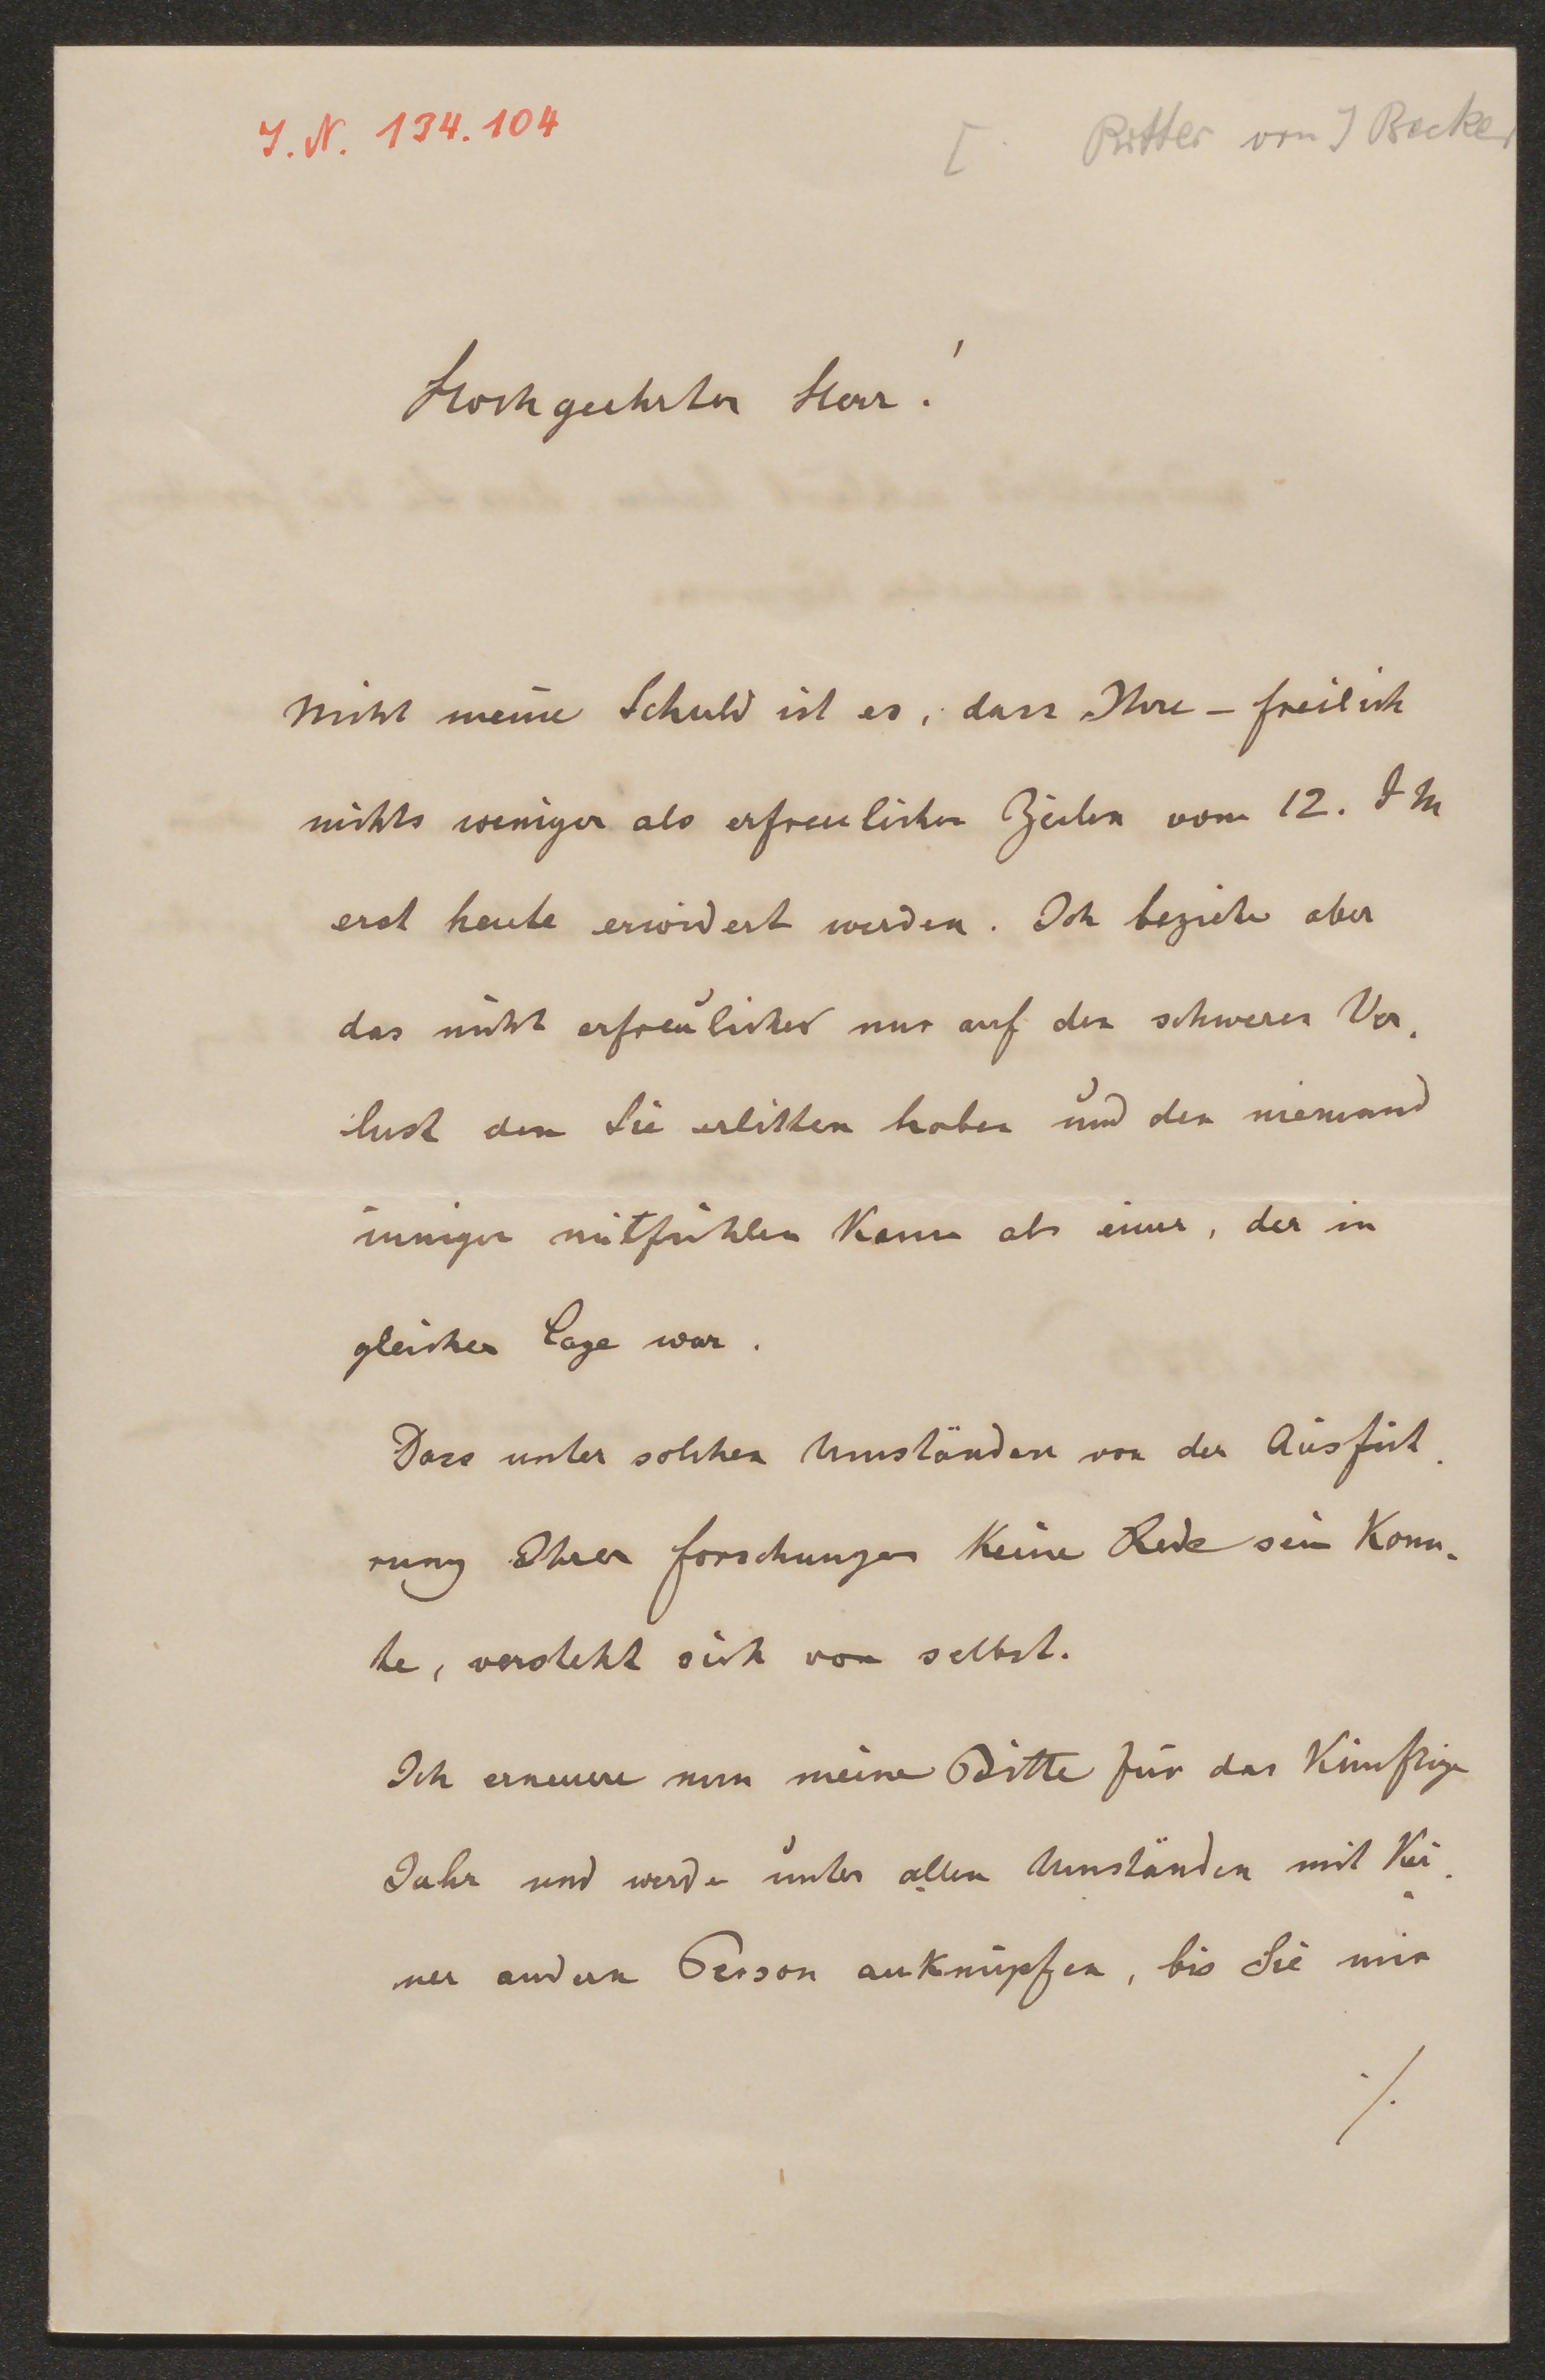 I. N. 134.104
[ Ritter von ] Becker
Hochgeehrter Herr!
Nicht meine Schuld ist es, dass Ihre – freilich
nichts weniger als erfreulichen Zeilen vom 12. d M
erst heute erwidert werden. Ich beziehe aber
das nicht erfreulicher nur auf den schweren Ver-
lust den Sie erlitten haben und den niemand
inniger mitfühlen kann als einer, der in
gleicher Lage war.
Dass unter solchen Umständen von der Ausfüh-
rung Ihrer Forschungen keine Rede sein konn-
te, versteht sich von selbst.
Ich erneuere nun meine Bitte für das künftige
Jahr und werde unter allen Umständen mit kei-
ner andern Person anknüpfen, bis Sie mir
./.